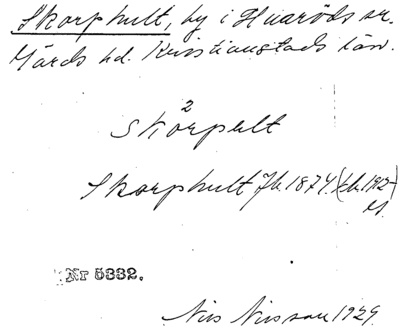 Skorphult, by i Huaröds sn.
Gärds hd. Kristianstads län.
2
skorpelt
Skorphult Jb. 1874 (tk. 1912-)
M.
Nr 5332.
Nils Nilsson 1929